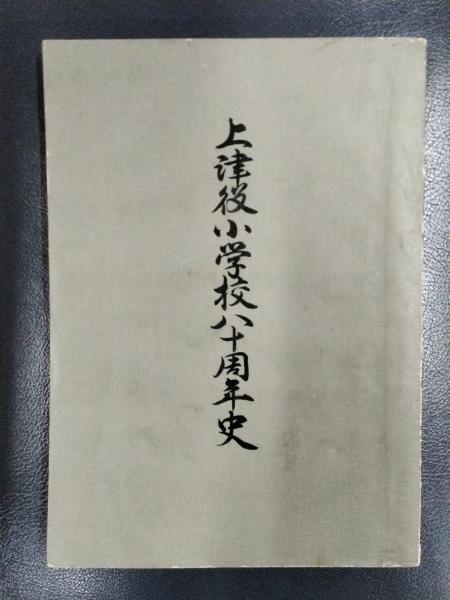 上津役小学校八十周年史